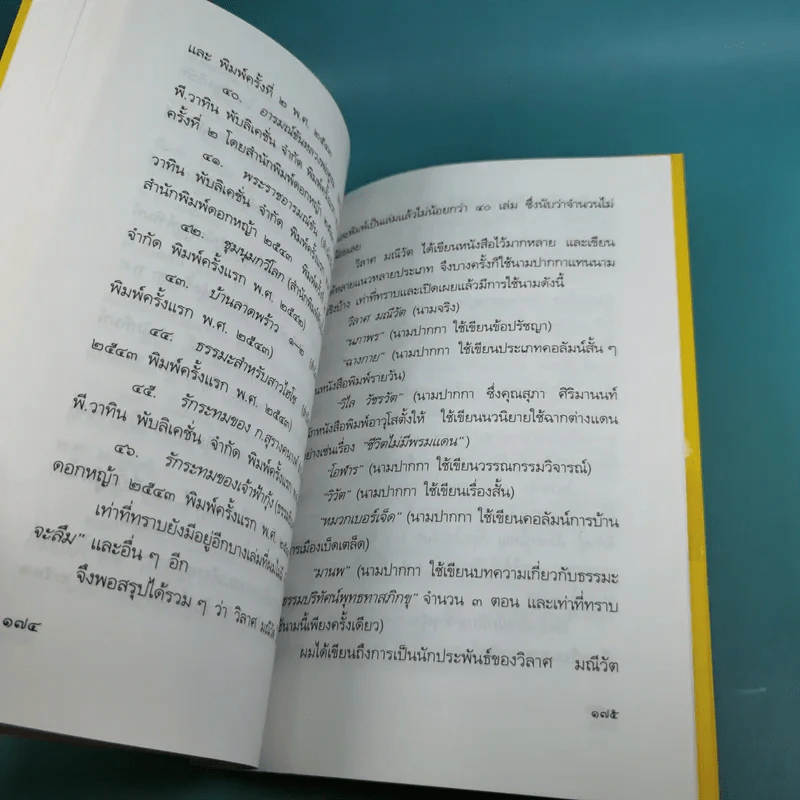 และ พิมพ์ครั้งที่ ๒ พ.ศ. ๒๕๓
๔๐. อารมณ์ขัน
พี.วาทิน พับลิเคชั่น จำกัด พิมพ์
ครั้งที่ ๒ โดยสำนักพิมพ์ดอกหญ้า
๔๑. พระราชอารมณ์ขัน
วาทิน พับลิเคชั่น จำกัด พิมพ์ครั้ง
สำนักพิมพ์ดอกหญ้า ๒๕๔๓ พิมพ์ครั้ง
๔๒. ชุมนุมกวีโลก (สำนักพิมพ์
จำกัด พิมพ์ครั้งแรก พ.ศ. ๒๕๔๒)
๔๓. บ้านลาดพร้าว ๑-๒
พิมพ์ครั้งแรก พ.ศ. ๒๕๔๓)
๔๔. ธรรมะสำหรับสาวไฮโซ
๒๕๔๓ พิมพ์ครั้งแรก พ.ศ. ๒๕๔๓)
๔๕. รักระทมของ ก.สุรางคนางค์
พี.วาทิน พับลิเคชั่น จำกัด พิมพ์ครั้งแรก พ.ศ.
๔๖. รักระทมของเจ้าฟ้ากุ้ง
ดอกหญ้า ๒๕๔๓ พิมพ์ครั้งแรก พ.ศ.
เท่าที่ทราบยังมีอยู่อีกบางเล่มที่
จะลืม” และอื่น ๆ อีก
จึงพอสรุปได้รวม ๆ ว่า วิลาศ มณีวัต
๑๗๔
และพิมพ์เป็นเล่มแล้วไม่น้อยกว่า ๔๐ เล่ม ซึ่งนับว่าจำนวนไม่
น้อยเลย
วิลาศ มณีวัต ได้เขียนหนังสือไว้มากหลาย และเขียน
ได้หลายแนวหลายประเภท จึงบางครั้งก็ใช้นามปากกาแทนนาม
จริงบ้าง เท่าที่ทราบและเปิดเผยแล้วมีการใช้นามดังนี้
วิลาศ มณีวัต (นามจริง)
“นภาพร” (นามปากกา ใช้เขียนข้อปรัชญา)
“ฉางกาย” (นามปากกา ใช้เขียนประเภทคอลัมน์สั้น ๆ
ในหนังสือพิมพ์รายวัน)
“วิไล วัชรวัต” (นามปากกา ซึ่งคุณสุภา ศิริมานนท์
นักหนังสือพิมพ์อาวุโสตั้งให้ ใช้เขียนนวนิยายใช้ฉากต่างแดน
อย่างเช่นเรื่อง “ชีวิตไม่มีพรมแดน”)
“โอฬาร” (นามปากกา ใช้เขียนวรรณกรรมวิจารณ์)
“วิวัต” (นามปากกา ใช้เขียนเรื่องสั้น)
“หมวกเบอร์เจ็ด” (นามปากกา ใช้เขียนคอลัมน์การบ้าน
การเมืองเบ็ดเตล็ด)
“มานพ” (นามปากกา ใช้เขียนบทความเกี่ยวกับธรรมะ
“ธรรมปริทัศน์พุทธทาสภิกขุ” จำนวน ๓ ตอน และเท่าที่ทราบ
ใช้นามนี้เพียงครั้งเดียว)
ผมได้เขียนถึงการเป็นนักประพันธ์ของวิลาศ มณีวัต
๑๗๕